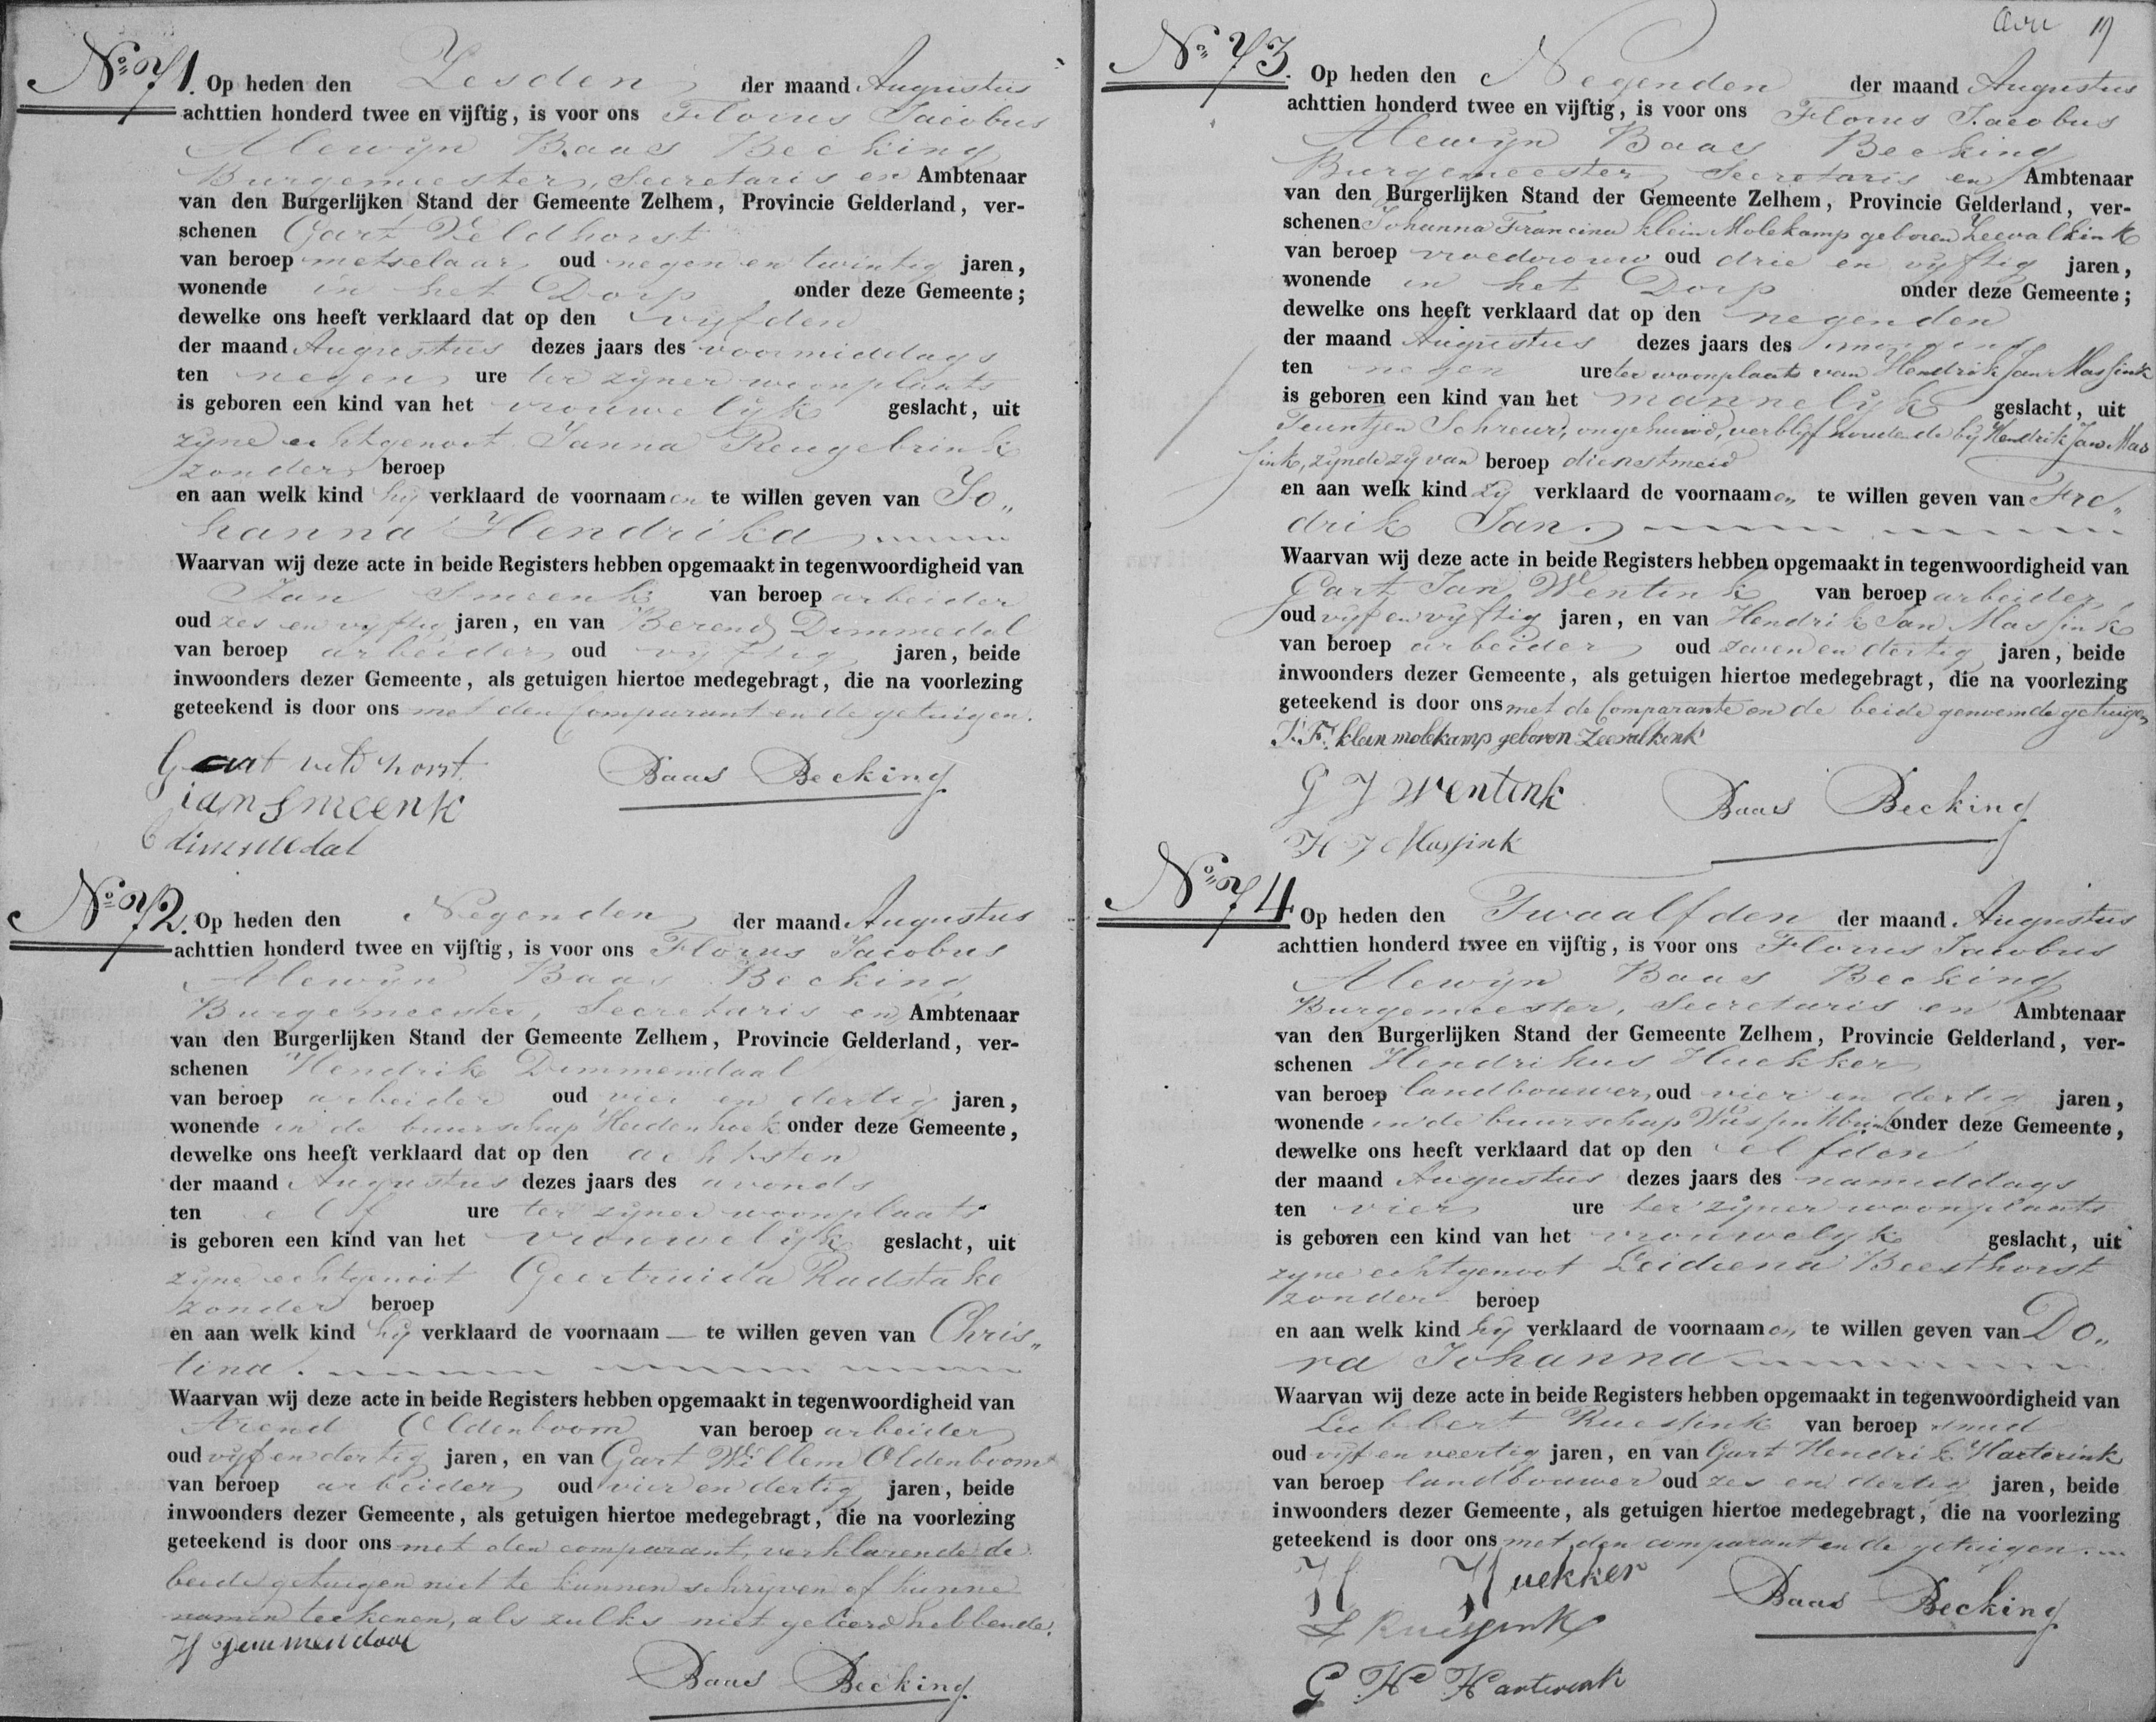 No 71. Op heden den Zesden der maand Augustus
achttien honderd twee en vijftig, is voor ons Florus Jacobus
Alewijn Baas Becking
Burgemeester, Secretaris en Ambtenaar
van den Burgerlijken Stand der Gemeente Zelhem, Provincie Gelderland, ver-
schenen Gart Veldhorst
van beroep metselaar oud negen en twintig jaren,
wonende in het Dorp onder deze Gemeente;
dewelke ons heeft verklaard dat op den vijfden
der maand Augustus dezes jaars des voormiddags
ten negen ure ter zijner woonplaats
is geboren een kind van het vrouwelijk geslacht, uit
zijne echtgenoot Janna Reugebrink
zonder beroep
en aan welk kind hij verklaard de voornaamen te willen geven van Jo„
hanna Hendrika
Waarvan wij deze acte in beide Registers hebben opgemaakt in tegenwoordigheid van
Jan Smeenk van beroep arbeider
oud zes en vijftig jaren, en van Berend Dimmedal
van beroep arbeider oud vijftig jaren, beide
inwoonders dezer Gemeente, als getuigen hiertoe medegebragt, die na voorlezing
geteekend is door ons met den Comparant en de getuigen.
Gart veld horst Baas Becking
jan Smeenk
dimmedal
No 72. Op heden den Negenden der maand Augustus
achttien honderd twee en vijftig, is voor ons Florus Jacobus
Alewijn Baas Becking
Burgemeester, Secretaris en Ambtenaar
van den Burgerlijken Stand der Gemeente Zelhem, Provincie Gelderland, ver-
schenen Hendrik Dimmendaal
van beroep arbeider oud vier en dertig jaren,
wonende in de buurschap Heidenhoek onder deze Gemeente,
dewelke ons heeft verklaard dat op den achtsten
der maand Augustus dezes jaars des avonds
ten elf ure ter zijner woonplaats
is geboren een kind van het vrouwelijk geslacht, uit
zijne echtgenoot Geertruida Radstake
zonder beroep
en aan welk kind hij verklaard de voornaam — te willen geven van Chris„
tina.
Waarvan wij deze acte in beide Registers hebben opgemaakt in tegenwoordigheid van
Arend Oldenboom van beroep arbeider
oud vijf en dertig jaren, en van Gart Willem Oldenboom
van beroep arbeider oud vier en dertig jaren, beide
inwoonders dezer Gemeente, als getuigen hiertoe medegebragt, die na voorlezing
geteekend is door ons met den comparant, verklarende de
beide getuigen niet te kunnen schrijven of hunne
namen teekenen, als zulks niet geleerd hebbende.
H Dimmendaal
Baas Becking
19
No 73. Op heden den Negenden der maand Augustus
achttien honderd twee en vijftig, is voor ons Florus Jacobus
Alewijn Baas Becking
Burgemeester, Secretaris en Ambtenaar
van den Burgerlijken Stand der Gemeente Zelhem, Provincie Gelderland, ver-
schenen Johanna Francina klein Molekamp geboren Zeevalkink
van beroep vroedvrouw oud drie en vijftig jaren,
wonende in het Dorp onder deze Gemeente;
dewelke ons heeft verklaard dat op den negenden
der maand Augustus dezes jaars des morgens
ten negen ure ter woonplaats van Hendrik Jan Massink
is geboren een kind van het mannelijk geslacht, uit
Teuntjen Schreur, ongehuwd, verblijf houdende bij Hendrik Jan Mas
sink, zijnde zij van beroep dienstmeid
en aan welk kind zij verklaard de voornaamen te willen geven van Fre„
drik Jan.
Waarvan wij deze acte in beide Registers hebben opgemaakt in tegenwoordigheid van
Gart Jan Wentink van beroep arbeider,
oud vijf en vijftig jaren, en van Hendrik Jan Massink
van beroep arbeider oud zeven en dertig jaren, beide
inwoonders dezer Gemeente, als getuigen hiertoe medegebragt, die na voorlezing
geteekend is door ons met de Comparante en de beide genoemde getuigen
J. F. klein molekamp geboren Zeevalkink
G J Wentink Baas Becking
H J Massink
No 74 Op heden den Twaalfden der maand Augustus
achttien honderd twee en vijftig, is voor ons Florus Jacobus
Alewijn Baas Becking
Burgemeester, Secretaris en Ambtenaar
van den Burgerlijken Stand der Gemeente Zelhem, Provincie Gelderland, ver-
schenen Hendrikus Huekker
van beroep landbouwer, oud vier en dertig jaren,
wonende in de buurschap onder deze Gemeente,
dewelke ons heeft verklaard dat op den elfden
der maand Augustus dezes jaars des namiddags
ten vier ure ter zijner woonplaats
is geboren een kind van het vrouwelijk geslacht, uit
zijne echtgenoot Leidiena Beesthorst
zonder beroep
en aan welk kind hij verklaard de voornaamen te willen geven van Do„
ra Johanna
Waarvan wij deze acte in beide Registers hebben opgemaakt in tegenwoordigheid van
Lubbert Ruessink van beroep smid
oud vijf en veertig jaren, en van Gart Hendrik Harterink
van beroep landbouwer oud zes en dertig jaren, beide
inwoonders dezer Gemeente, als getuigen hiertoe medegebragt, die na voorlezing
geteekend is door ons met den comparant en de getuigen.
H Huekker Baas Becking
L Ruessink
G He Harterink